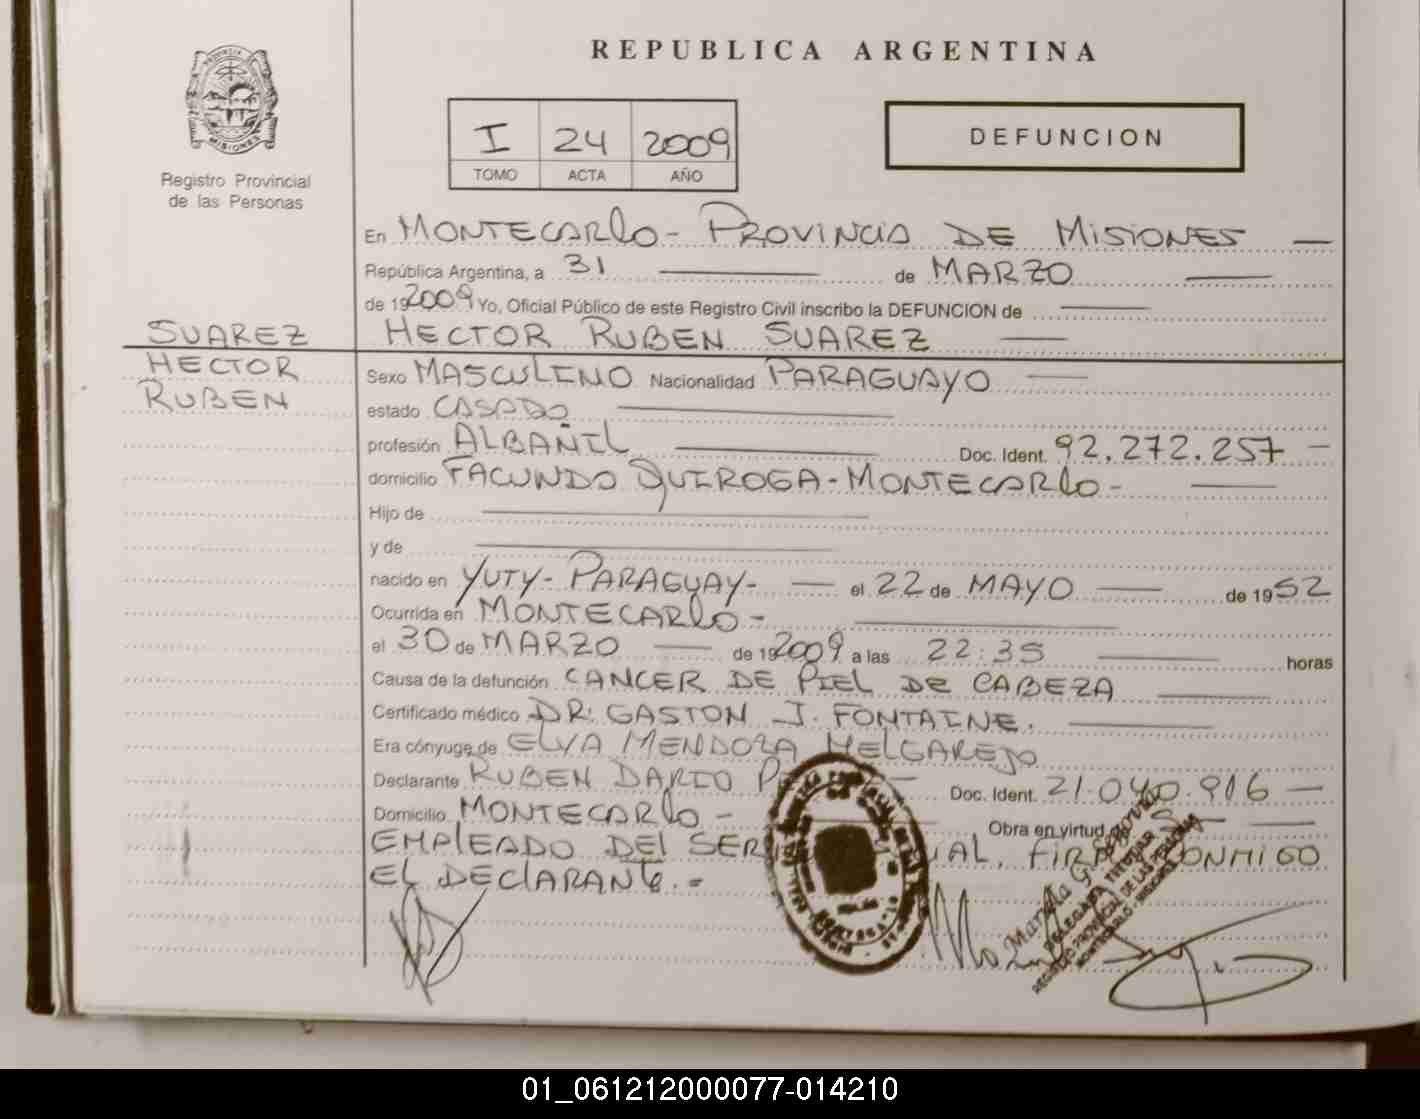 REPUBLICA ARGENTINA
PROVINCIA
MISIONES
Registro Provincial
de las Personas
I 24 2009
TOMO ACTA AÑO
DEFUNCION
En MONTECARLO - PROVINCIA DE MISIONES —
República Argentina, a 31 — de MARZO —
de 192009 Yo, Oficial Público de este Registro Civil inscribo la DEFUNCION de —
SUAREZ HECTOR RUBEN SUAREZ —
HECTOR
RUBEN
Sexo MASCULINO Nacionalidad PARAGUAYO —
estado CASADO —
profesión ALBAÑIL — Doc. Ident. 92.272.257 —
domicilio FACUNDO QUIROGA - MONTECARLO - —
Hijo de —
y de —
nacido en YUTY - PARAGUAY - — el 22 de MAYO — de 1952
Ocurrida en MONTECARLO - —
el 30 de MARZO — de 192009 a las 22:35 — horas
Causa de la defunción CANCER DE PIEL DE CABEZA —
Certificado médico DR: GASTON J. FONTAINE. —
Era cónyuge de ELVA MENDOZA MELGAREJO
Declarante RUBEN DARIO — Doc. Ident. 21.040.916 —
Domicilio MONTECARLO - — Obra en virtud de —
EMPLEADO DEL FIRMA CONMIGO
EL DECLARANTE. -
DELEGADA TITULAR
REGISTRO PROVINCIAL DE LAS PERSONAS
MONTECARLO - MISIONES
01_061212000077-014210